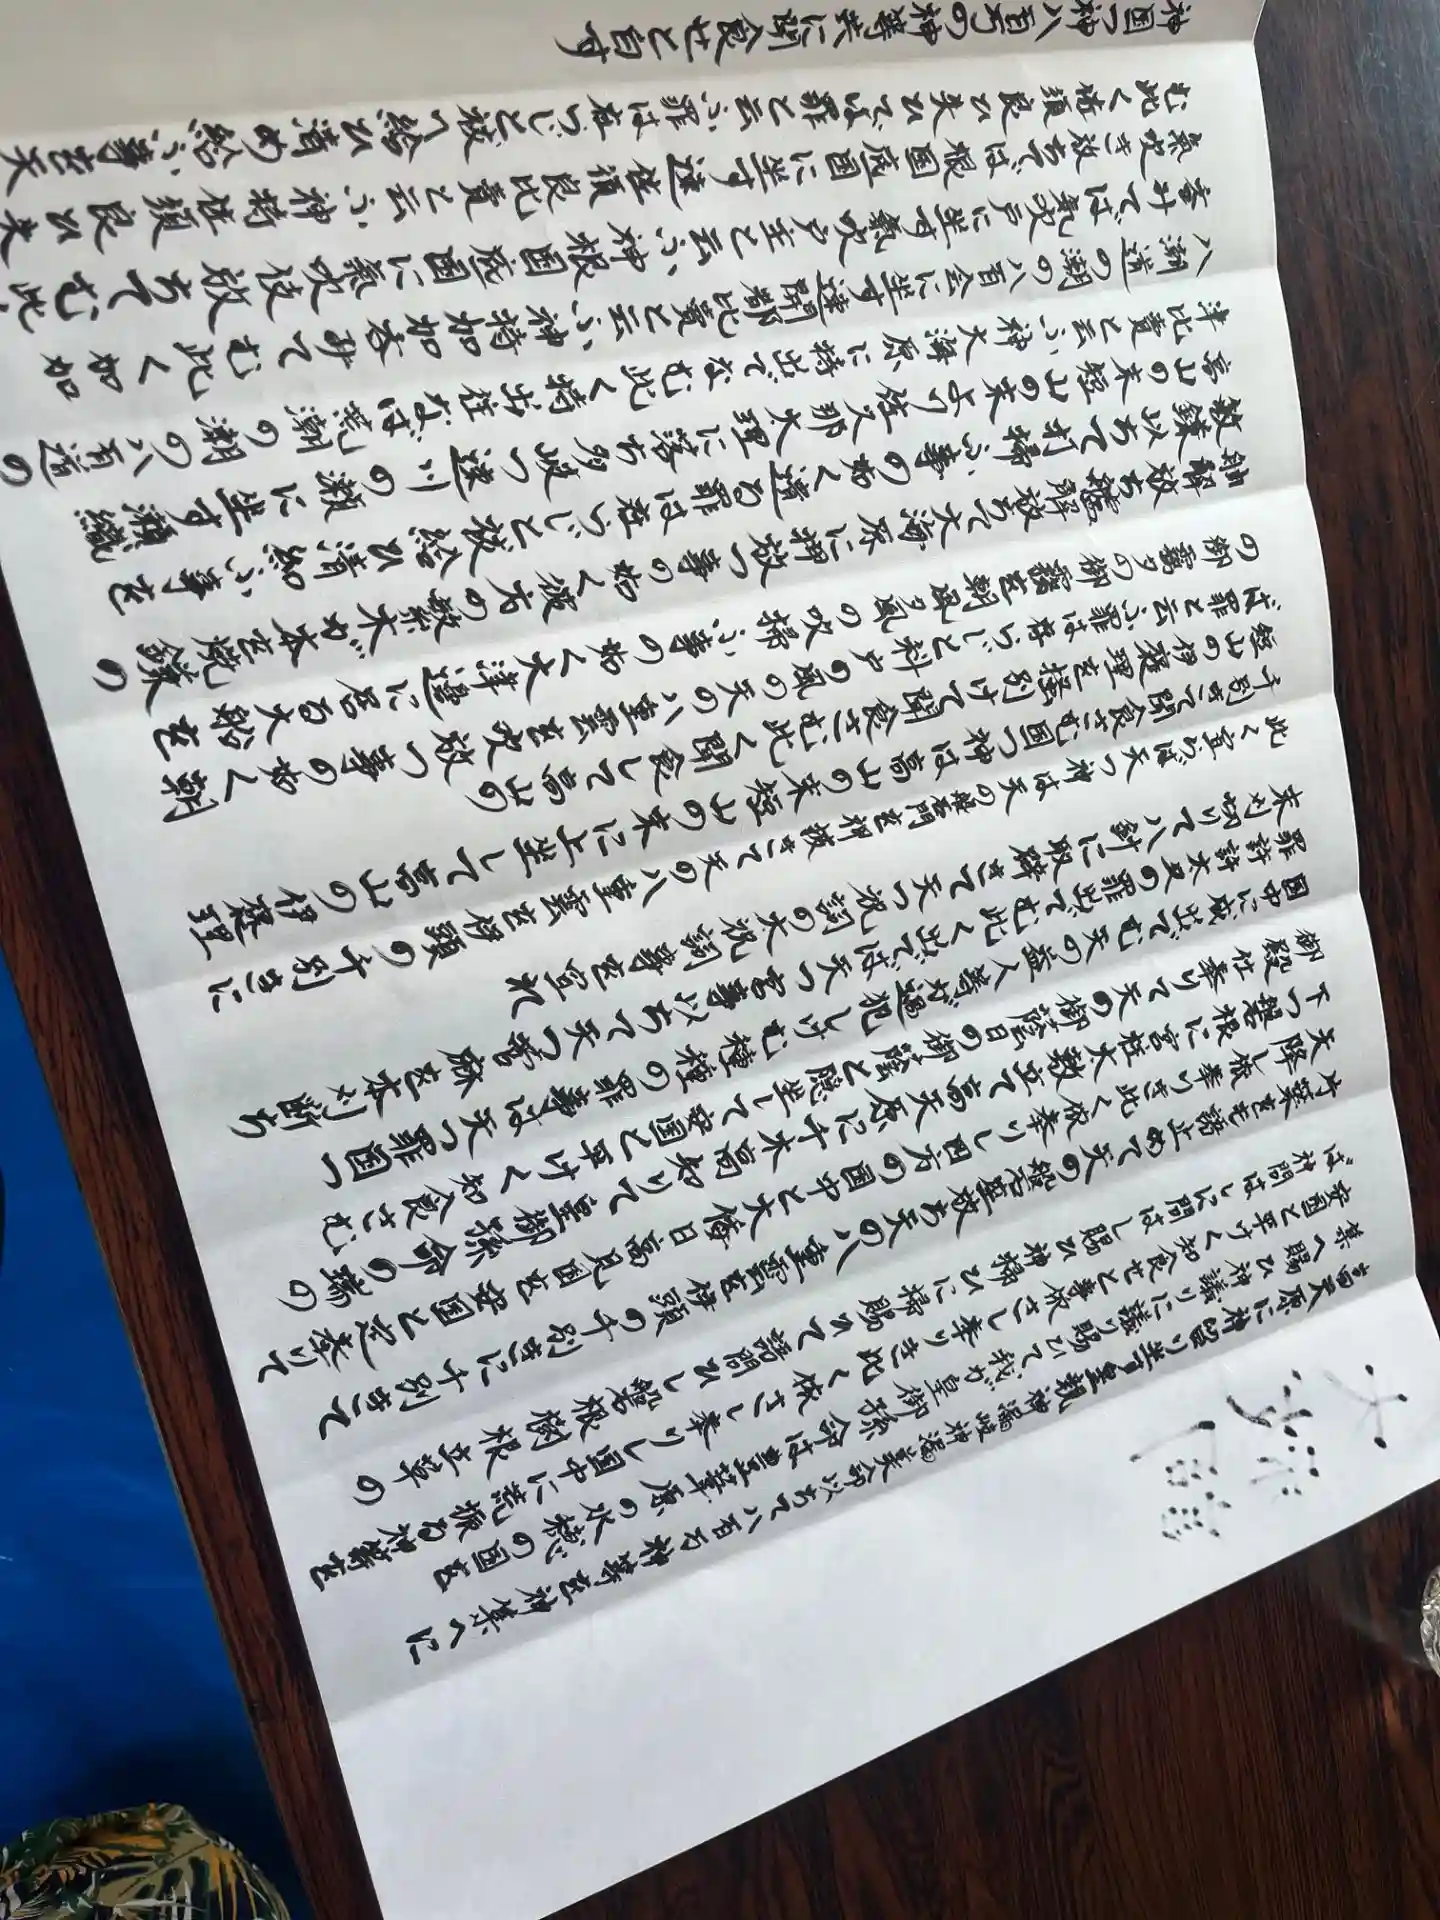 大祓詞
高天原に神留り坐す皇親神漏岐神漏美命以ちて八百万神等を神集へに
集へ賜ひ神議りに議り賜ひて我が皇御孫命は豊葦原の水穂の国を
安国と平けく知食せと事依さし奉りき此く依さし奉りし国中に荒振る神等を
ば神問はしに問はし賜ひ神掃ひに掃賜ひて語問ひし磐根樹根立草の
片葉をも語止めて天の磐座放ち天の八重雲を伊頭の千別きに千別きて
天降し依奉りき此く依奉りし四方の国中と大倭日高見国を安国と定奉りて
下つ磐根に宮柱太敷立て高天原に千木高知りて皇御孫命の瑞の
御殿仕奉りて天の御蔭日の御蔭と隠坐して安国と平けく知食さむ
国中に成出でむ天の益人等が過犯しけむ種種の罪事は天つ罪国つ
罪許許太久の罪出でむ此く出でば天つ宮事以ちて天つ菅麻を本刈断ち
末刈切りて八針に取辟きて天つ祝詞の太祝詞事を宣れ
此く宣らば天つ神は天の磐門を押披きて天の八重雲を伊頭の千別きに
千別きて聞食さむ国つ神は高山の末短山の末に上坐して高山の伊褒理
短山の伊褒理を掻別けて聞食さむ此く聞食して高山の
ば罪と云ふ罪は在らじと科戸の風の天の八重雲を吹放つ事の如く朝
の御霧夕の御霧を朝風夕風の吹掃ふ事の如く大津邊に居る大船を
舳解放ち艫解放ちて大海原に押放つ事の如く彼方の繁木が本を焼鎌の
敏鎌以ちて打掃ふ事の如く遺る罪は在らじと祓給ひ清給ふ事を
高山の末短山の末より佐久那太理に落ち多岐つ速川の瀬に坐す瀬織
津比賣と云ふ神大海原に持出でなむ此く持出往なば荒潮の潮の八百道の
八潮道の潮の八百会に坐す速開都比賣と云ふ神持加加呑みてむ此く加加
呑みてば氣吹戸に坐す氣吹戸主と云ふ神根国底国に氣吹放ちてむ此く
氣吹き放ちてば根国底国に坐す速佐須良比賣と云ふ神持佐須良ひ失
む此く佐須良ひ失ひてば罪と云ふ罪は在らじと祓へ給ひ清め給ふ事を天
神国つ神八百万の神等共に聞食せと白す